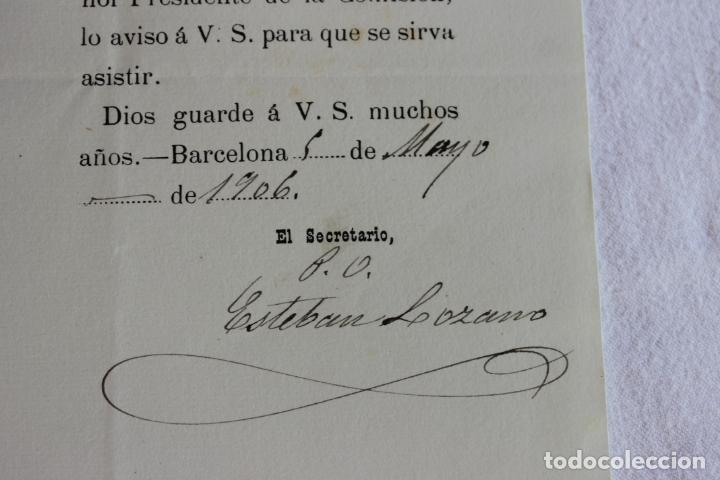 nor Presidente de la Comisión,
lo aviso á V. S. para que se sirva
asistir.
Dios guarde á V. S. muchos
años.—Barcelona 5 de Mayo
de 1906.
El Secretario,
P. O.
Esteban Lozano
todocoleccion.net